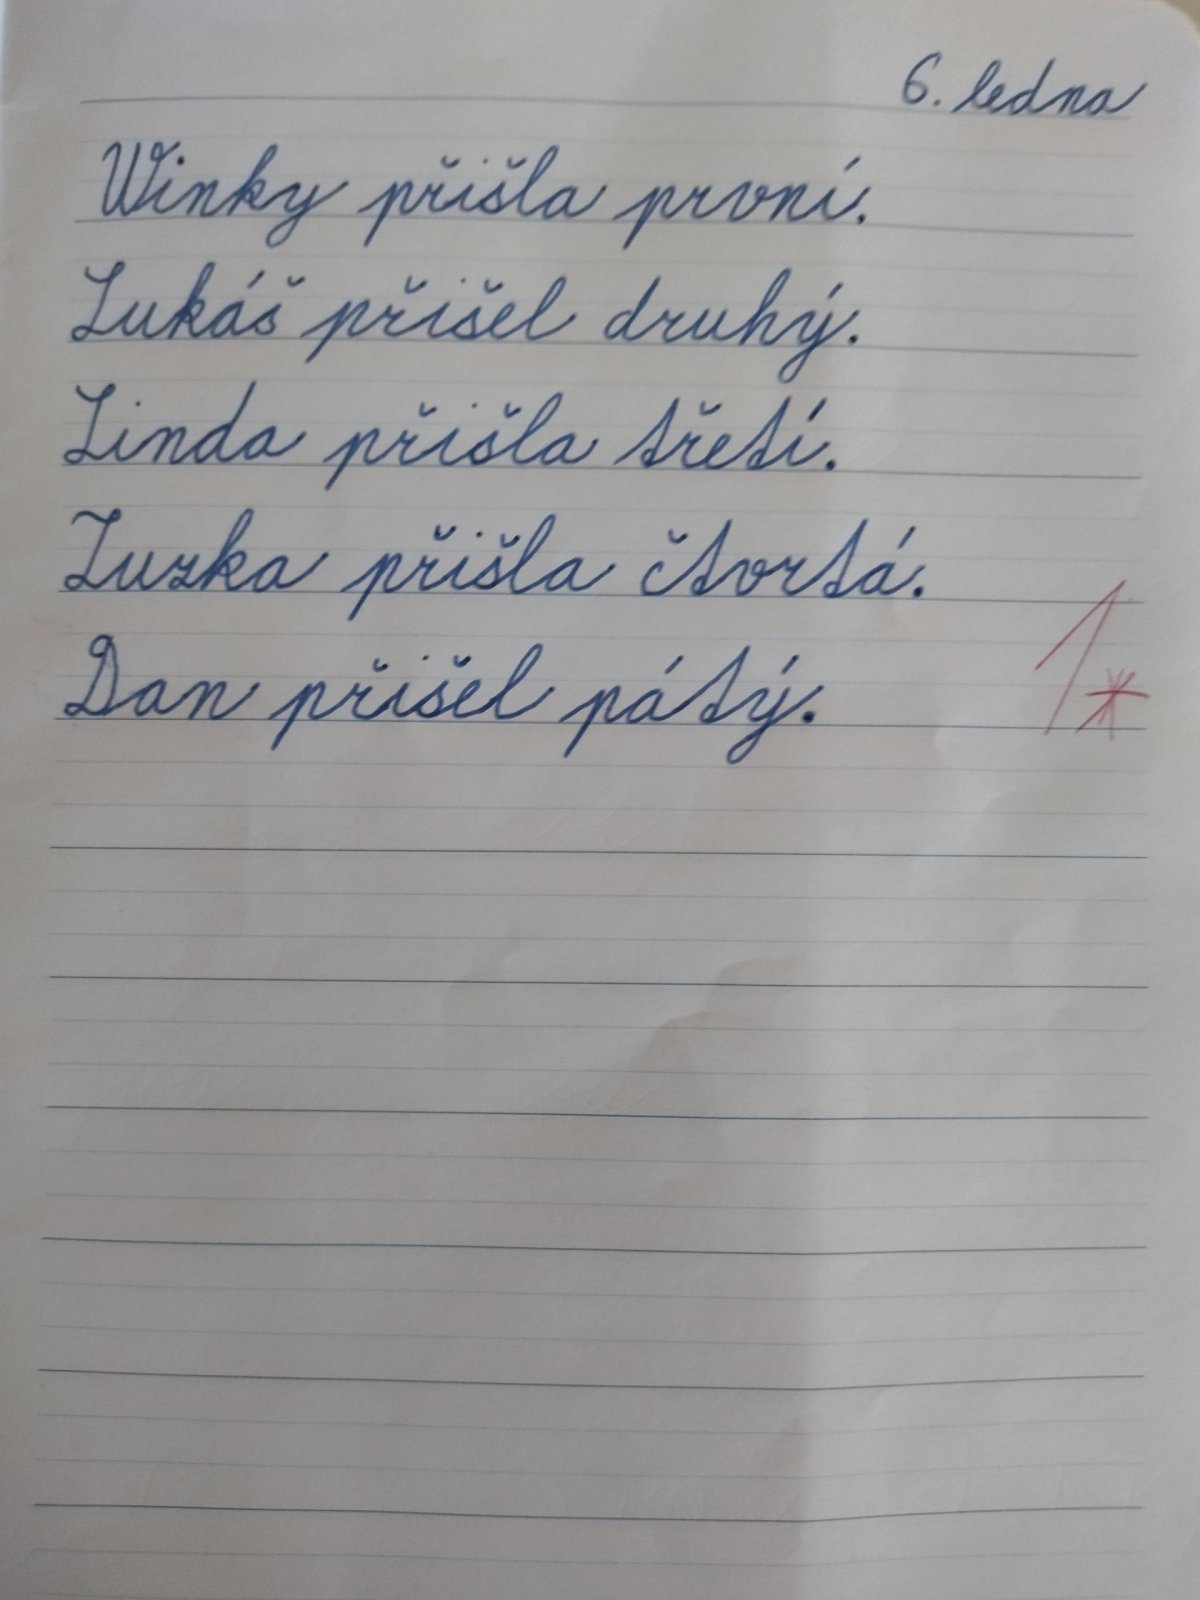 6. ledna
Winky přišla první.
Lukáš přišel druhý.
Linda přišla třetí.
Zuzka přišla čtvrtá.
Dan přišel pátý.
1*